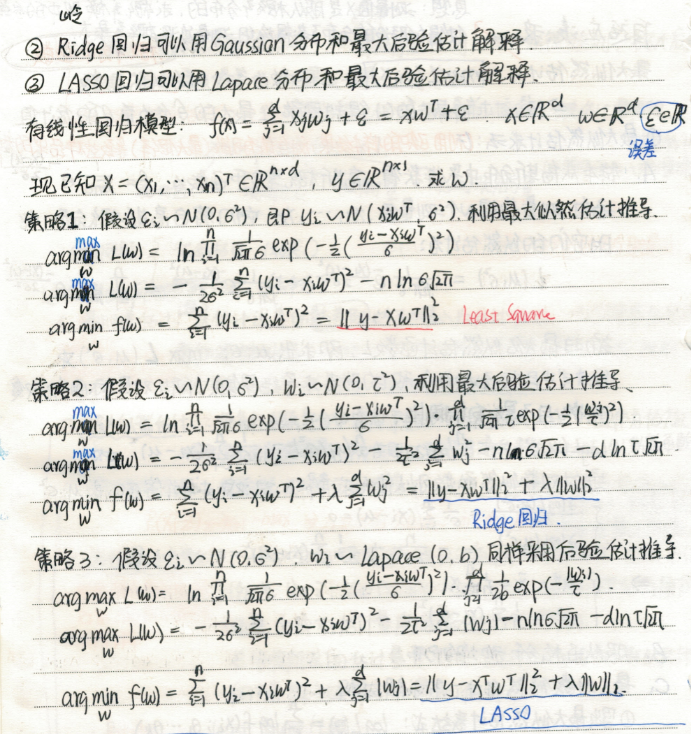 岭
② Ridge 回归可以用 Gaussian 分布和最大后验估计解释.
③ LASSO 回归可以用 Lapace 分布和最大后验估计解释.
有线性回归模型: f(x) = ∑_{j=1}^{d} x_j w_j + ε = xw^T + ε. x∈R^d w∈R^d ε∈R
误差
现已知 X = (x_1, ⋯, x_n)^T ∈ R^{n×d}, y∈R^{n×1}. 求 w.
策略1: 假设 ε_i ~ N(0, б²), 即 y_i ~ N(x_i w^T, б²). 利用最大似然估计推导.
arg max_w L(w) = ln ∏_{i=1}^{n} 1/(√2π б) exp(-1/2((y_i - x_i w^T)/б)²)
arg max_w L(w) = - 1/(2б²) ∑_{i=1}^{n} (y_i - x_i w^T)² - n ln б√2π
arg min_w f(w) = ∑_{i=1}^{n} (y_i - x_i w^T)² = ‖y - Xw^T‖_2^2 Least Square
策略2: 假设 ε_i ~ N(0, б²), w_i ~ N(0, τ²), 利用最大后验估计推导.
arg max_w L(w) = ln ∏_{i=1}^{n} 1/(√2π б) exp(-1/2((y_i - x_i w^T)/б)²) · ∏_{j=1}^{d} 1/(√2π τ) exp(-1/2(w_j/τ)²)
arg max_w L(w) = - 1/(2б²) ∑_{i=1}^{n} (y_i - x_i w^T)² - 1/(2τ²) ∑_{j=1}^{d} w_j² - n ln б√2π - d ln τ√2π.
arg min_w f(w) = ∑_{i=1}^{n} (y_i - x_i w^T)² + λ∑_{j=1}^{d} w_j² = ‖y - Xw^T‖_2^2 + λ‖w‖_2^2.
Ridge 回归.
策略3: 假设 ε_i ~ N(0, б²). w_i ~ Lapace (0, b) 同样采用后验估计推导.
arg max_w L(w) = ln ∏_{i=1}^{n} 1/(√2π б) exp(-1/2((y_i - x_i w^T)/б)²) · ∏_{j=1}^{d} 1/(2b) exp(-|w_j|/τ).
arg max_w L(w) = - 1/(2б²) ∑_{i=1}^{n} (y_i - x_i w^T)² - 1/(2τ²) ∑_{j=1}^{d} |w_j| - n ln б√2π - d ln τ√2π
arg min_w f(w) = ∑_{i=1}^{n} (y_i - x_i w^T)² + λ∑_{j=1}^{d} |w_j| = ‖y - X^T w^T‖_2^2 + λ‖w‖_1.
LASSO